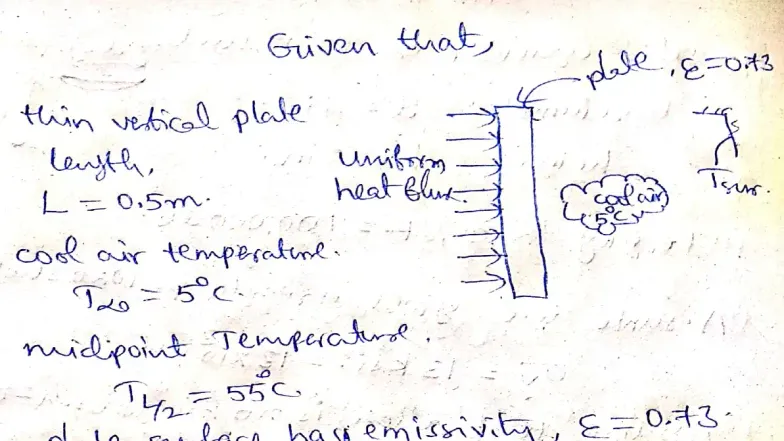 Given that,
plate, ε=0.73
thin vertical plate
length,
L = 0.5m.
uniform
heat flux.
cool air
5°C
Tsur.
cool air temperature.
T∞ = 5°C.
midpoint Temperature.
T_L/2 = 55°C
surface has emissivity, ε = 0.73.